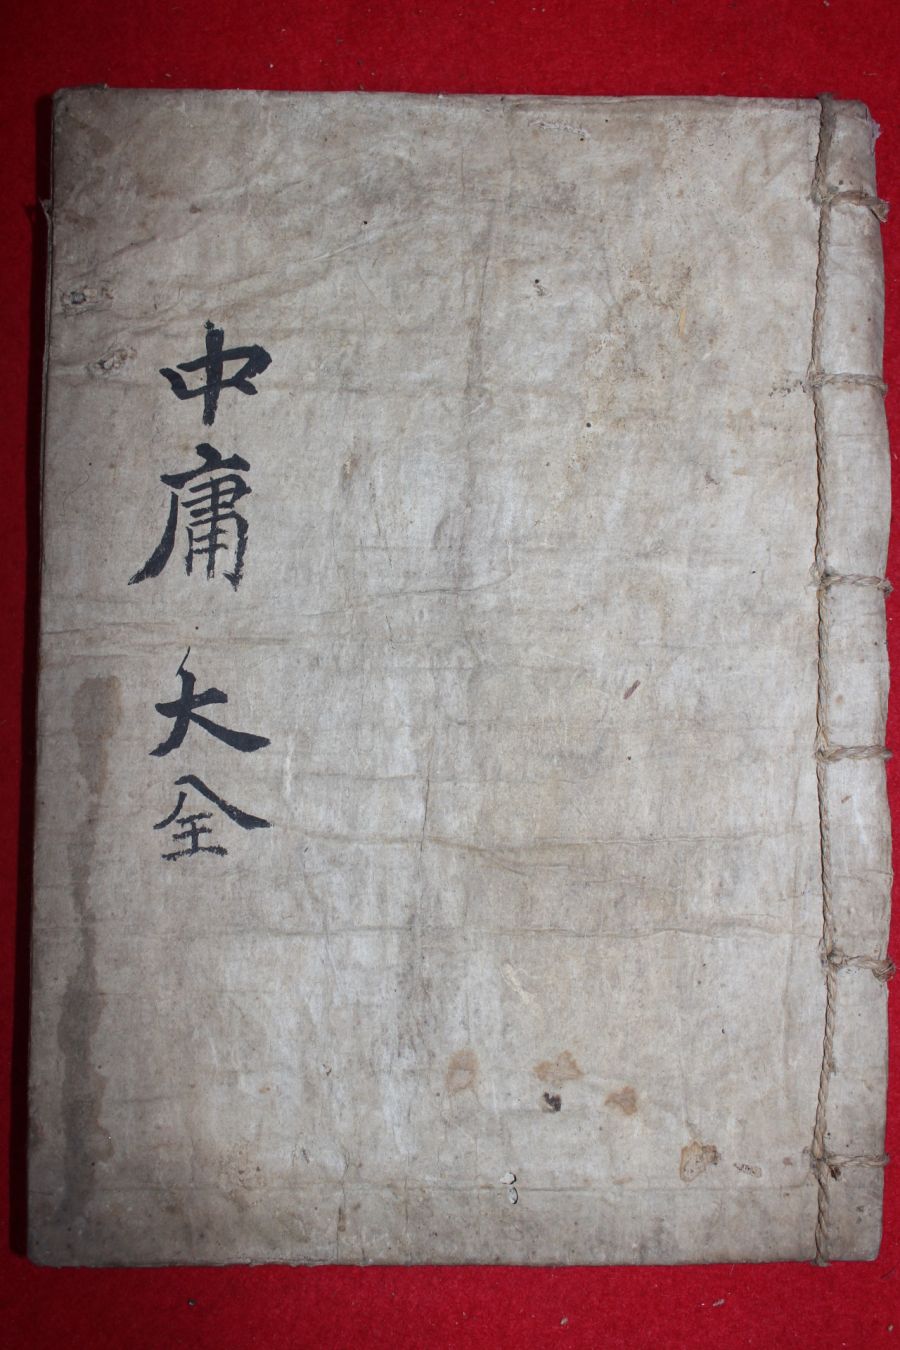 中庸大全